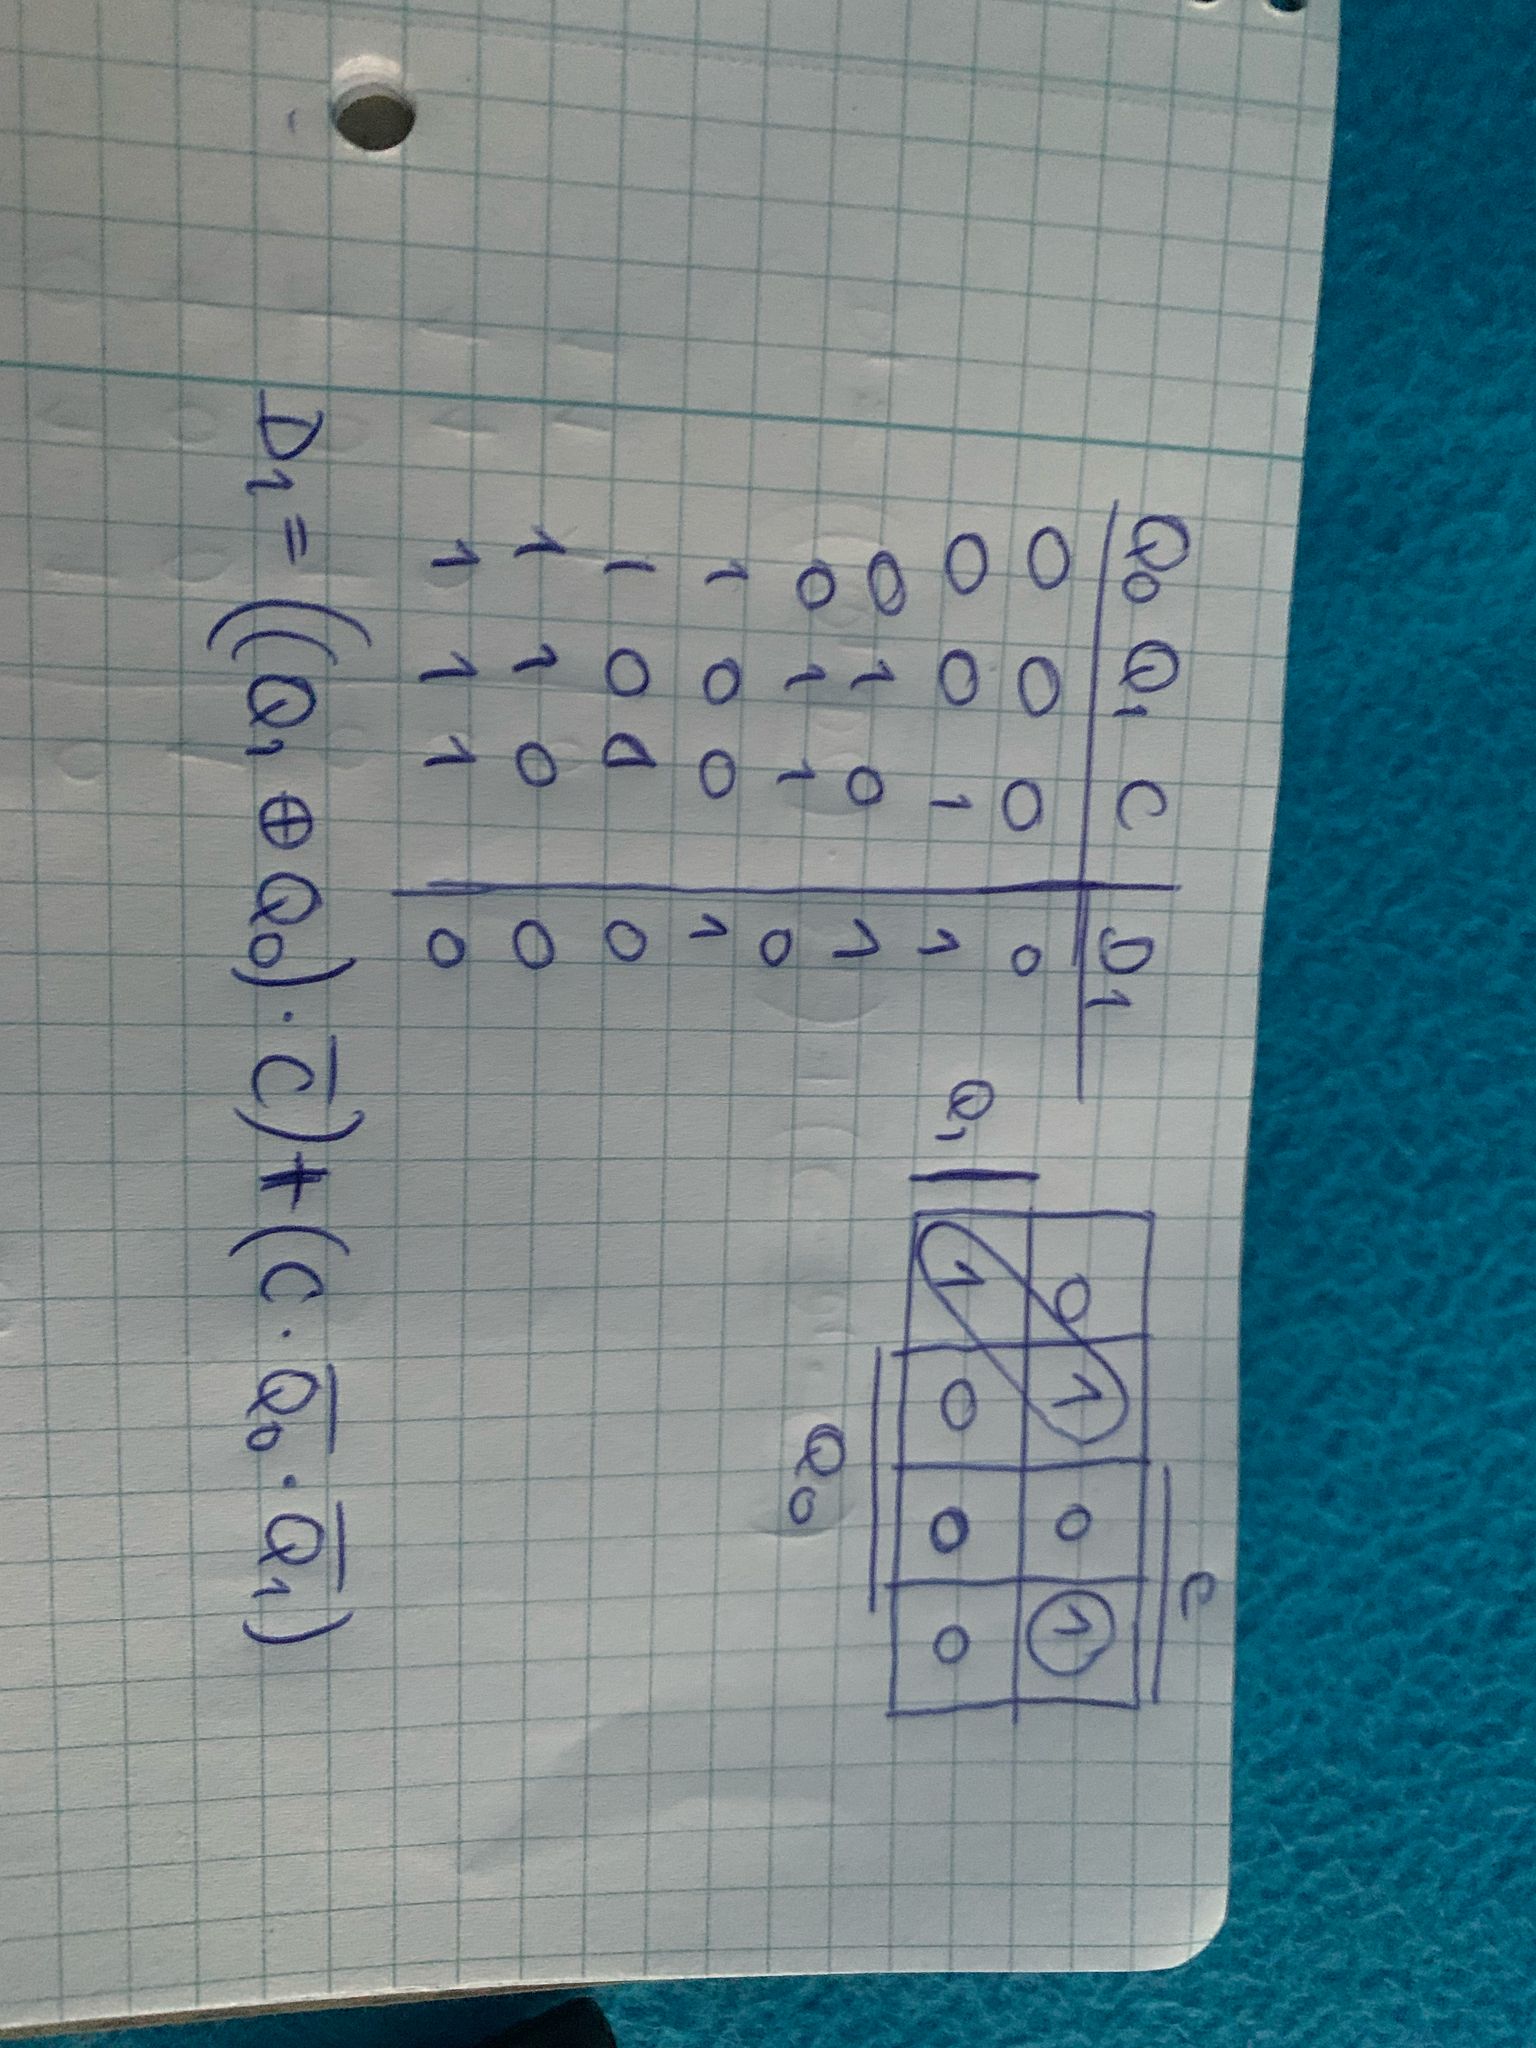 Q₀ Q₁ C | D₁
0 0 0 | 0
0 0 1 | 1
0 1 0 | 1
0 1 1 | 0
1 0 0 | 1
1 0 1 | 0
1 1 0 | 0
1 1 1 | 0
C
0 1 0 1
Q₁ 1 0 0 0
Q₀
D₁ = ((Q₁ ⊕ Q₀) · C̅) + (C · Q̅₀ · Q̅₁)